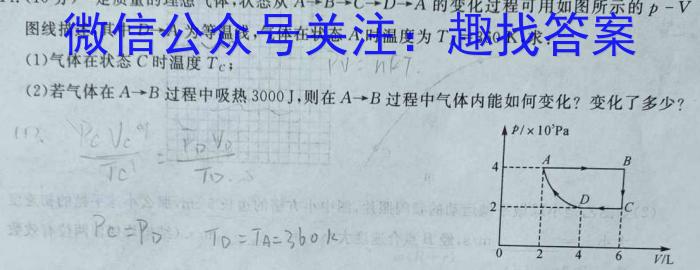 质量的理想气体,状态从 A→B→C→D→A 的变化过程可用如图所示的 p-V
图线描述,其中 D→A 为等温线,气体在状态 A 时温度为 T
微信公众号关注：趣找答案
(1)气体在状态 C 时温度 T_C;
(2)若气体在 A→B 过程中吸热 3000 J,则在 A→B 过程中气体内能如何变化? 变化了多少?
P_C V_C / T_C = P_D V_D / T_D
P_C = P_D T_D = T_A = 360K
p/×10⁵Pa
4 A B
2 D C
0 2 4 6 V/L